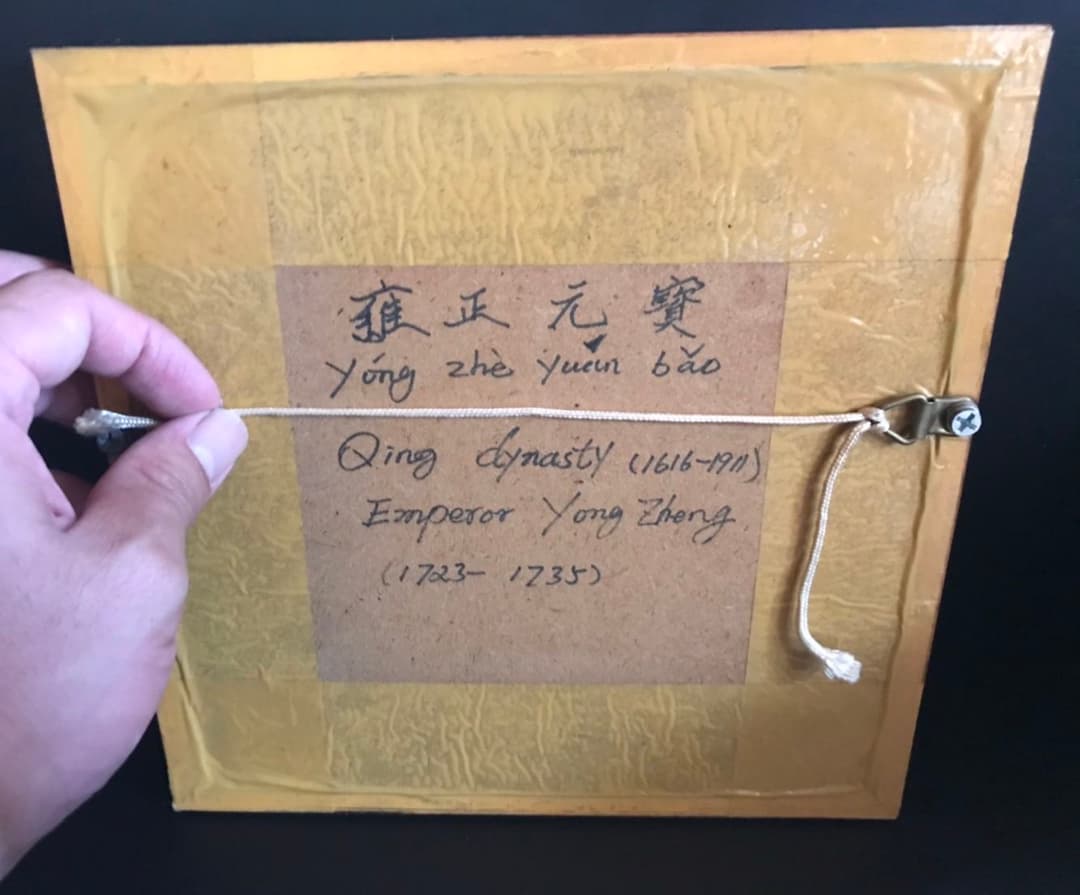 雍正元寶
yóng zhè yuán bǎo
Qing dynasty (1616-1911)
Emperor Yong Zheng
(1723- 1735)